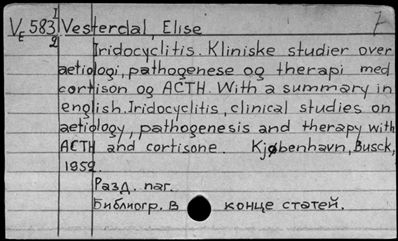 VE 583 1/2 Vesterdal, Elise 7
Iridocyclitis. Kliniske studier over
aetiologi, pathogenese og therapi med
cortison og ACTH. With a summary in
english. Iridocyclitis, clinical studies on
aetiology, pathogenesis and therapy with
ACTH and cortisone. Kjøbenhavn, Busck,
1952.
Разд. паг.
Библиогр. в конце статей.